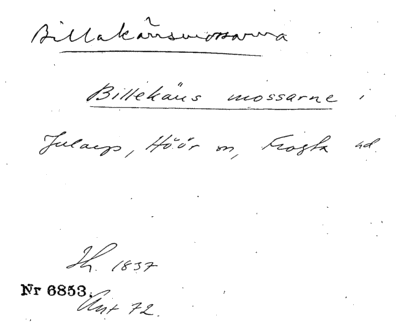 Billakärsmossarna
Billekäns mossarne i
Julaup, Höör sn, Frosta hd
Jh. 1837
Nr 6853.
Ant 72.